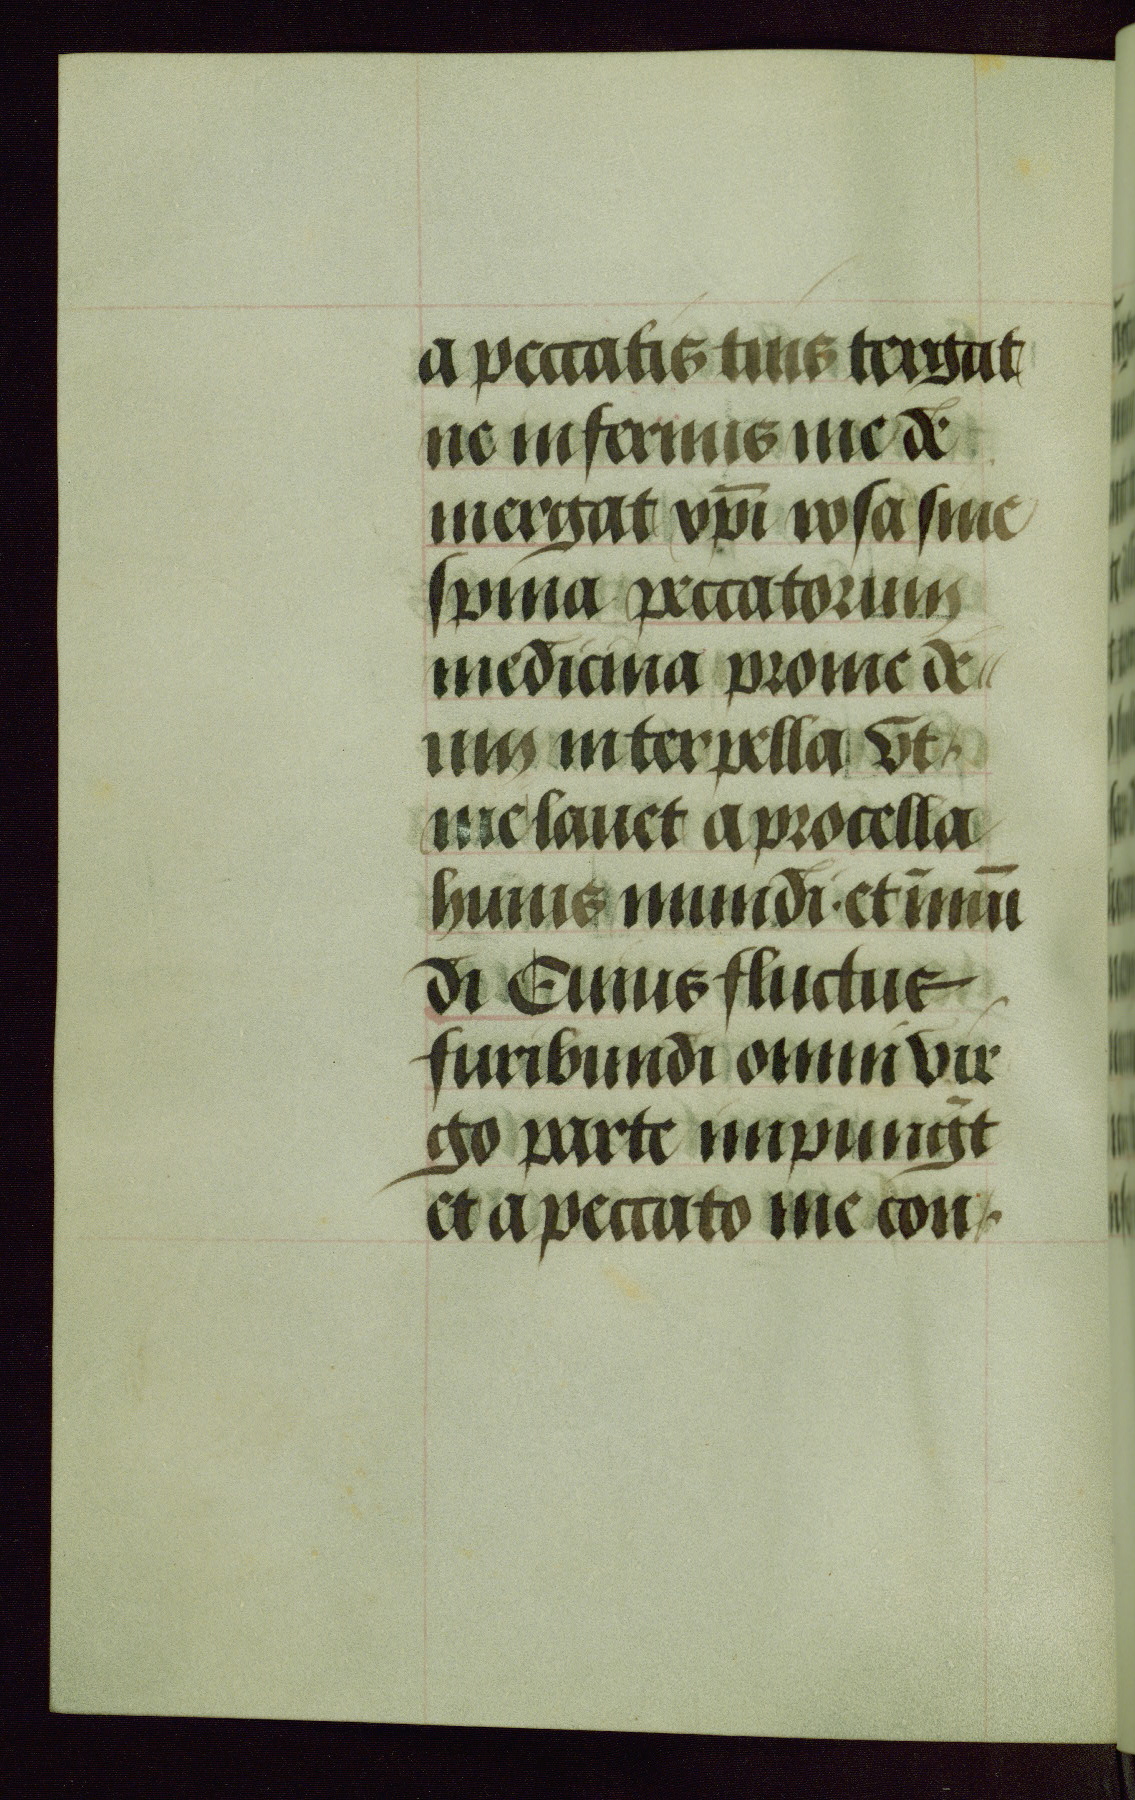 a peccatis tuis tergat
ne infernus me de
mergat vp̄i rosa sine
spina peccatorum
medicina pro me de
um interpella Vt
me lauet a procella
huius mundi · et īmū
di Cuius fluctus
furibundi omni vir
go parte impungūt
et a peccato me con